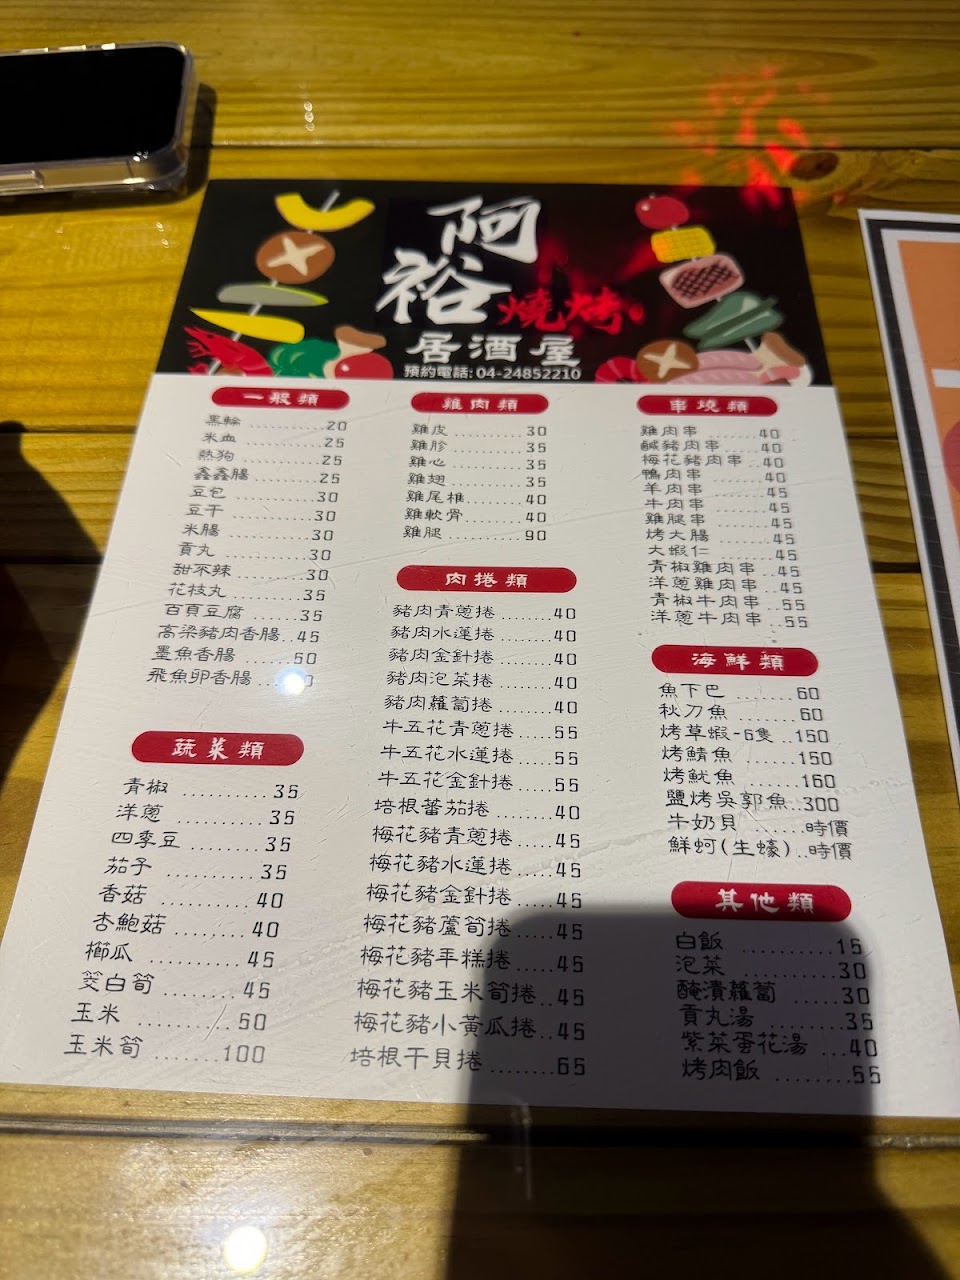 阿裕
燒烤
居酒屋
預約電話: 04-24852210
一般類
黑輪 ..........20
米血 ..........25
熱狗 ..........25
鑫鑫腸 ..........25
豆包 ..........30
豆干 ..........30
米腸 ..........30
貢丸 ..........30
甜不辣 ..........30
花枝丸 ..........35
百頁豆腐 .......35
高梁豬肉香腸..45
墨魚香腸 ......50
飛魚卵香腸 ...
蔬菜類
青椒 ..........35
洋蔥 ..........35
四季豆 ........35
茄子 ..........35
香菇 ..........40
杏鮑菇 ........40
櫛瓜 ..........45
筊白筍 ........45
玉米 ..........50
玉米筍 .......100
雞肉類
雞皮 ..........30
雞胗 ..........35
雞心 ..........35
雞翅 ..........35
雞尾椎........40
雞軟骨........40
雞腿 ..........90
肉捲類
豬肉青蔥捲 ........40
豬肉水蓮捲 ........40
豬肉金針捲 ........40
豬肉泡菜捲 ........40
豬肉蘿蔔捲 ........40
牛五花青蔥捲.....55
牛五花水蓮捲.....55
牛五花金針捲.....55
培根蕃茄捲 ........40
梅花豬青蔥捲.....45
梅花豬水蓮捲.....45
梅花豬金針捲.....45
梅花豬蘆筍捲.....45
梅花豬年糕捲.....45
梅花豬玉米筍捲..45
梅花豬小黃瓜捲..45
培根干貝捲 ........65
串燒類
雞肉串 .......40
鹹豬肉串 ....40
梅花豬肉串 ..40
鴨肉串 .......40
羊肉串 .......45
牛肉串 .......45
雞腿串 .......45
烤大腸 .......45
大蝦仁 .......45
青椒雞肉串 ..45
洋蔥雞肉串 ..45
青椒牛肉串 ..55
洋蔥牛肉串 ..55
海鮮類
魚下巴 .......60
秋刀魚 .......60
烤草蝦-6隻 ..150
烤鯖魚 .......150
烤魷魚 .......160
鹽烤吳郭魚..300
牛奶貝 .......時價
鮮蚵(生蠔)..時價
其他類
白飯 ..........15
泡菜 ..........30
醃漬蘿蔔 .....30
貢丸湯 ........35
紫菜蛋花湯 ...40
烤肉飯 ........55